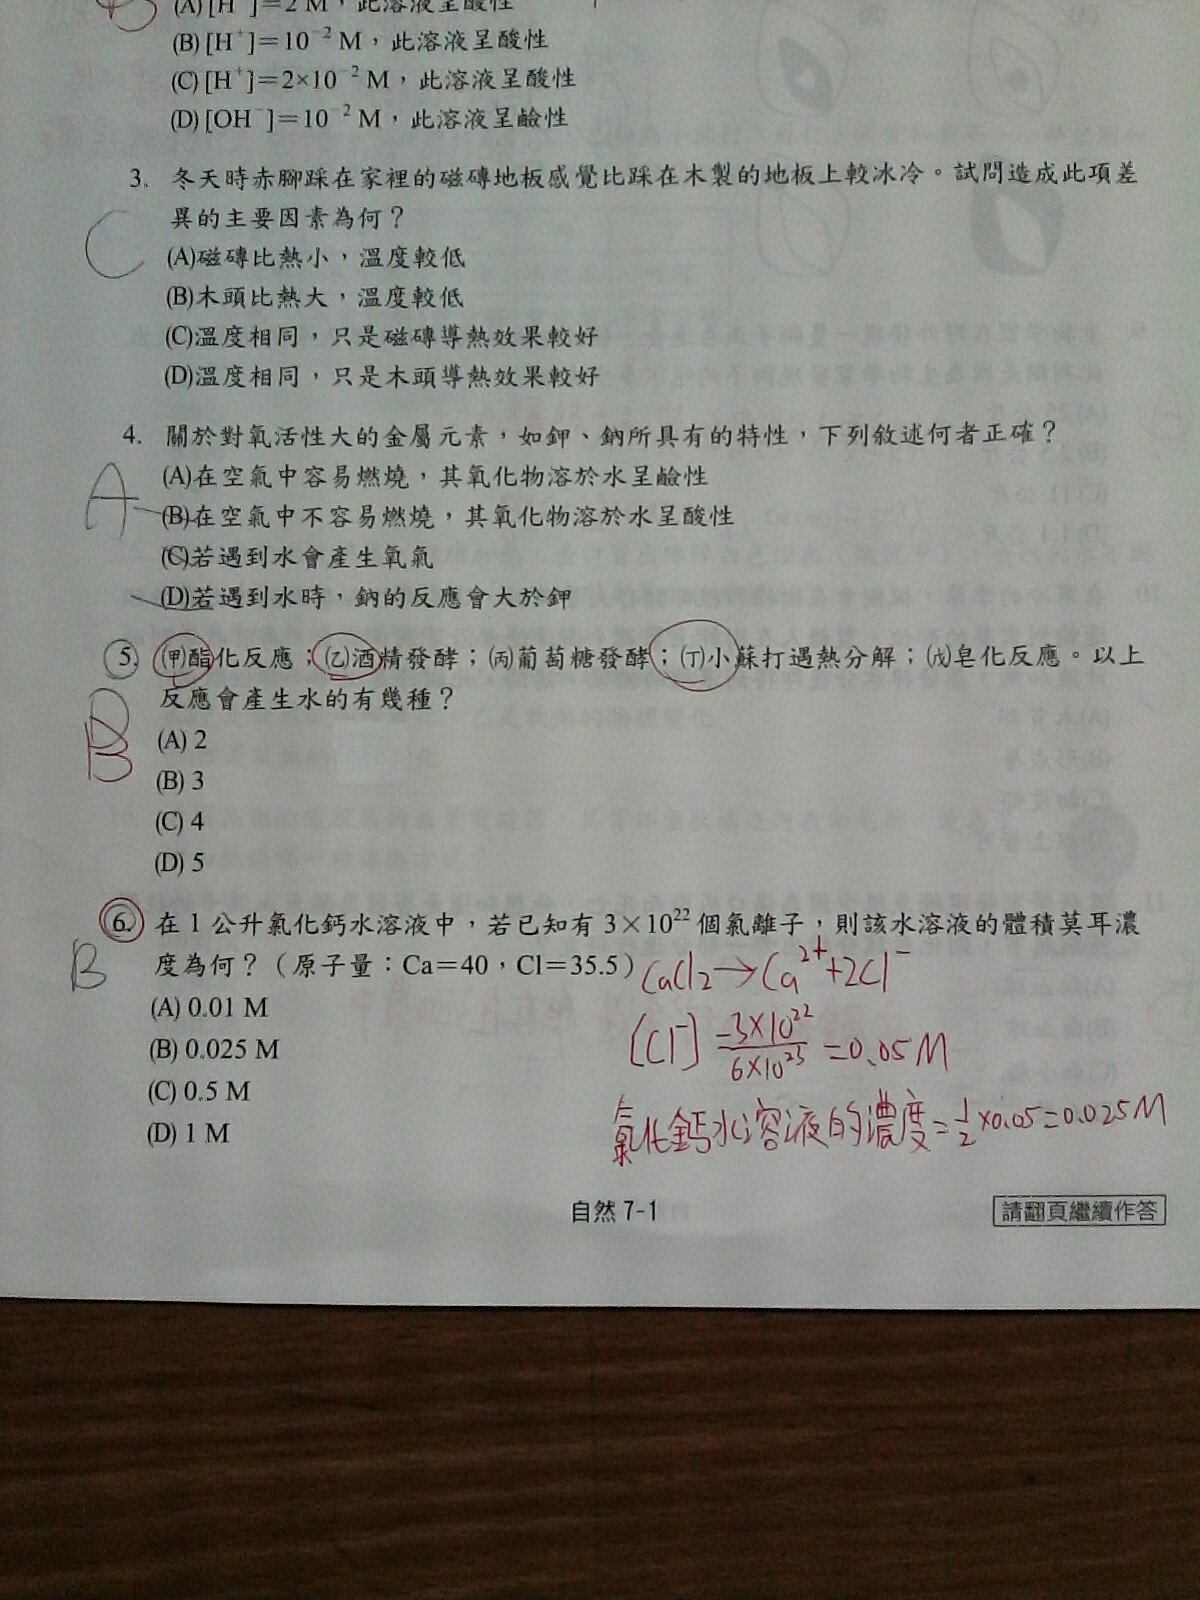 B
(A) [H⁺]=2 M，此溶液呈酸性
(B) [H⁺]=10⁻² M，此溶液呈酸性
(C) [H⁺]=2×10⁻² M，此溶液呈酸性
(D) [OH⁻]=10⁻² M，此溶液呈鹼性
3. 冬天時赤腳踩在家裡的磁磚地板感覺比踩在木製的地板上較冰冷。試問造成此項差
異的主要因素為何？
C
(A)磁磚比熱小，溫度較低
(B)木頭比熱大，溫度較低
(C)溫度相同，只是磁磚導熱效果較好
(D)溫度相同，只是木頭導熱效果較好
4. 關於對氧活性大的金屬元素，如鉀、鈉所具有的特性，下列敘述何者正確？
A
(A)在空氣中容易燃燒，其氧化物溶於水呈鹼性
(B)在空氣中不容易燃燒，其氧化物溶於水呈酸性
(C)若遇到水會產生氧氣
(D)若遇到水時，鈉的反應會大於鉀
5. ㈎酯化反應；㈏酒精發酵；㈐葡萄糖發酵；㈑小蘇打遇熱分解；㈒皂化反應。以上
反應會產生水的有幾種？
D
B
(A) 2
(B) 3
(C) 4
(D) 5
6. 在 1 公升氯化鈣水溶液中，若已知有 3×10²² 個氯離子，則該水溶液的體積莫耳濃
度為何？（原子量：Ca=40，Cl=35.5）CaCl₂→Ca²⁺+2Cl⁻
B
(A) 0.01 M
[Cl⁻]=3×10²²/6×10²³=0.05M
(B) 0.025 M
(C) 0.5 M
氯化鈣水溶液的濃度=1/2×0.05=0.025M
(D) 1 M
自然 7-1
請翻頁繼續作答